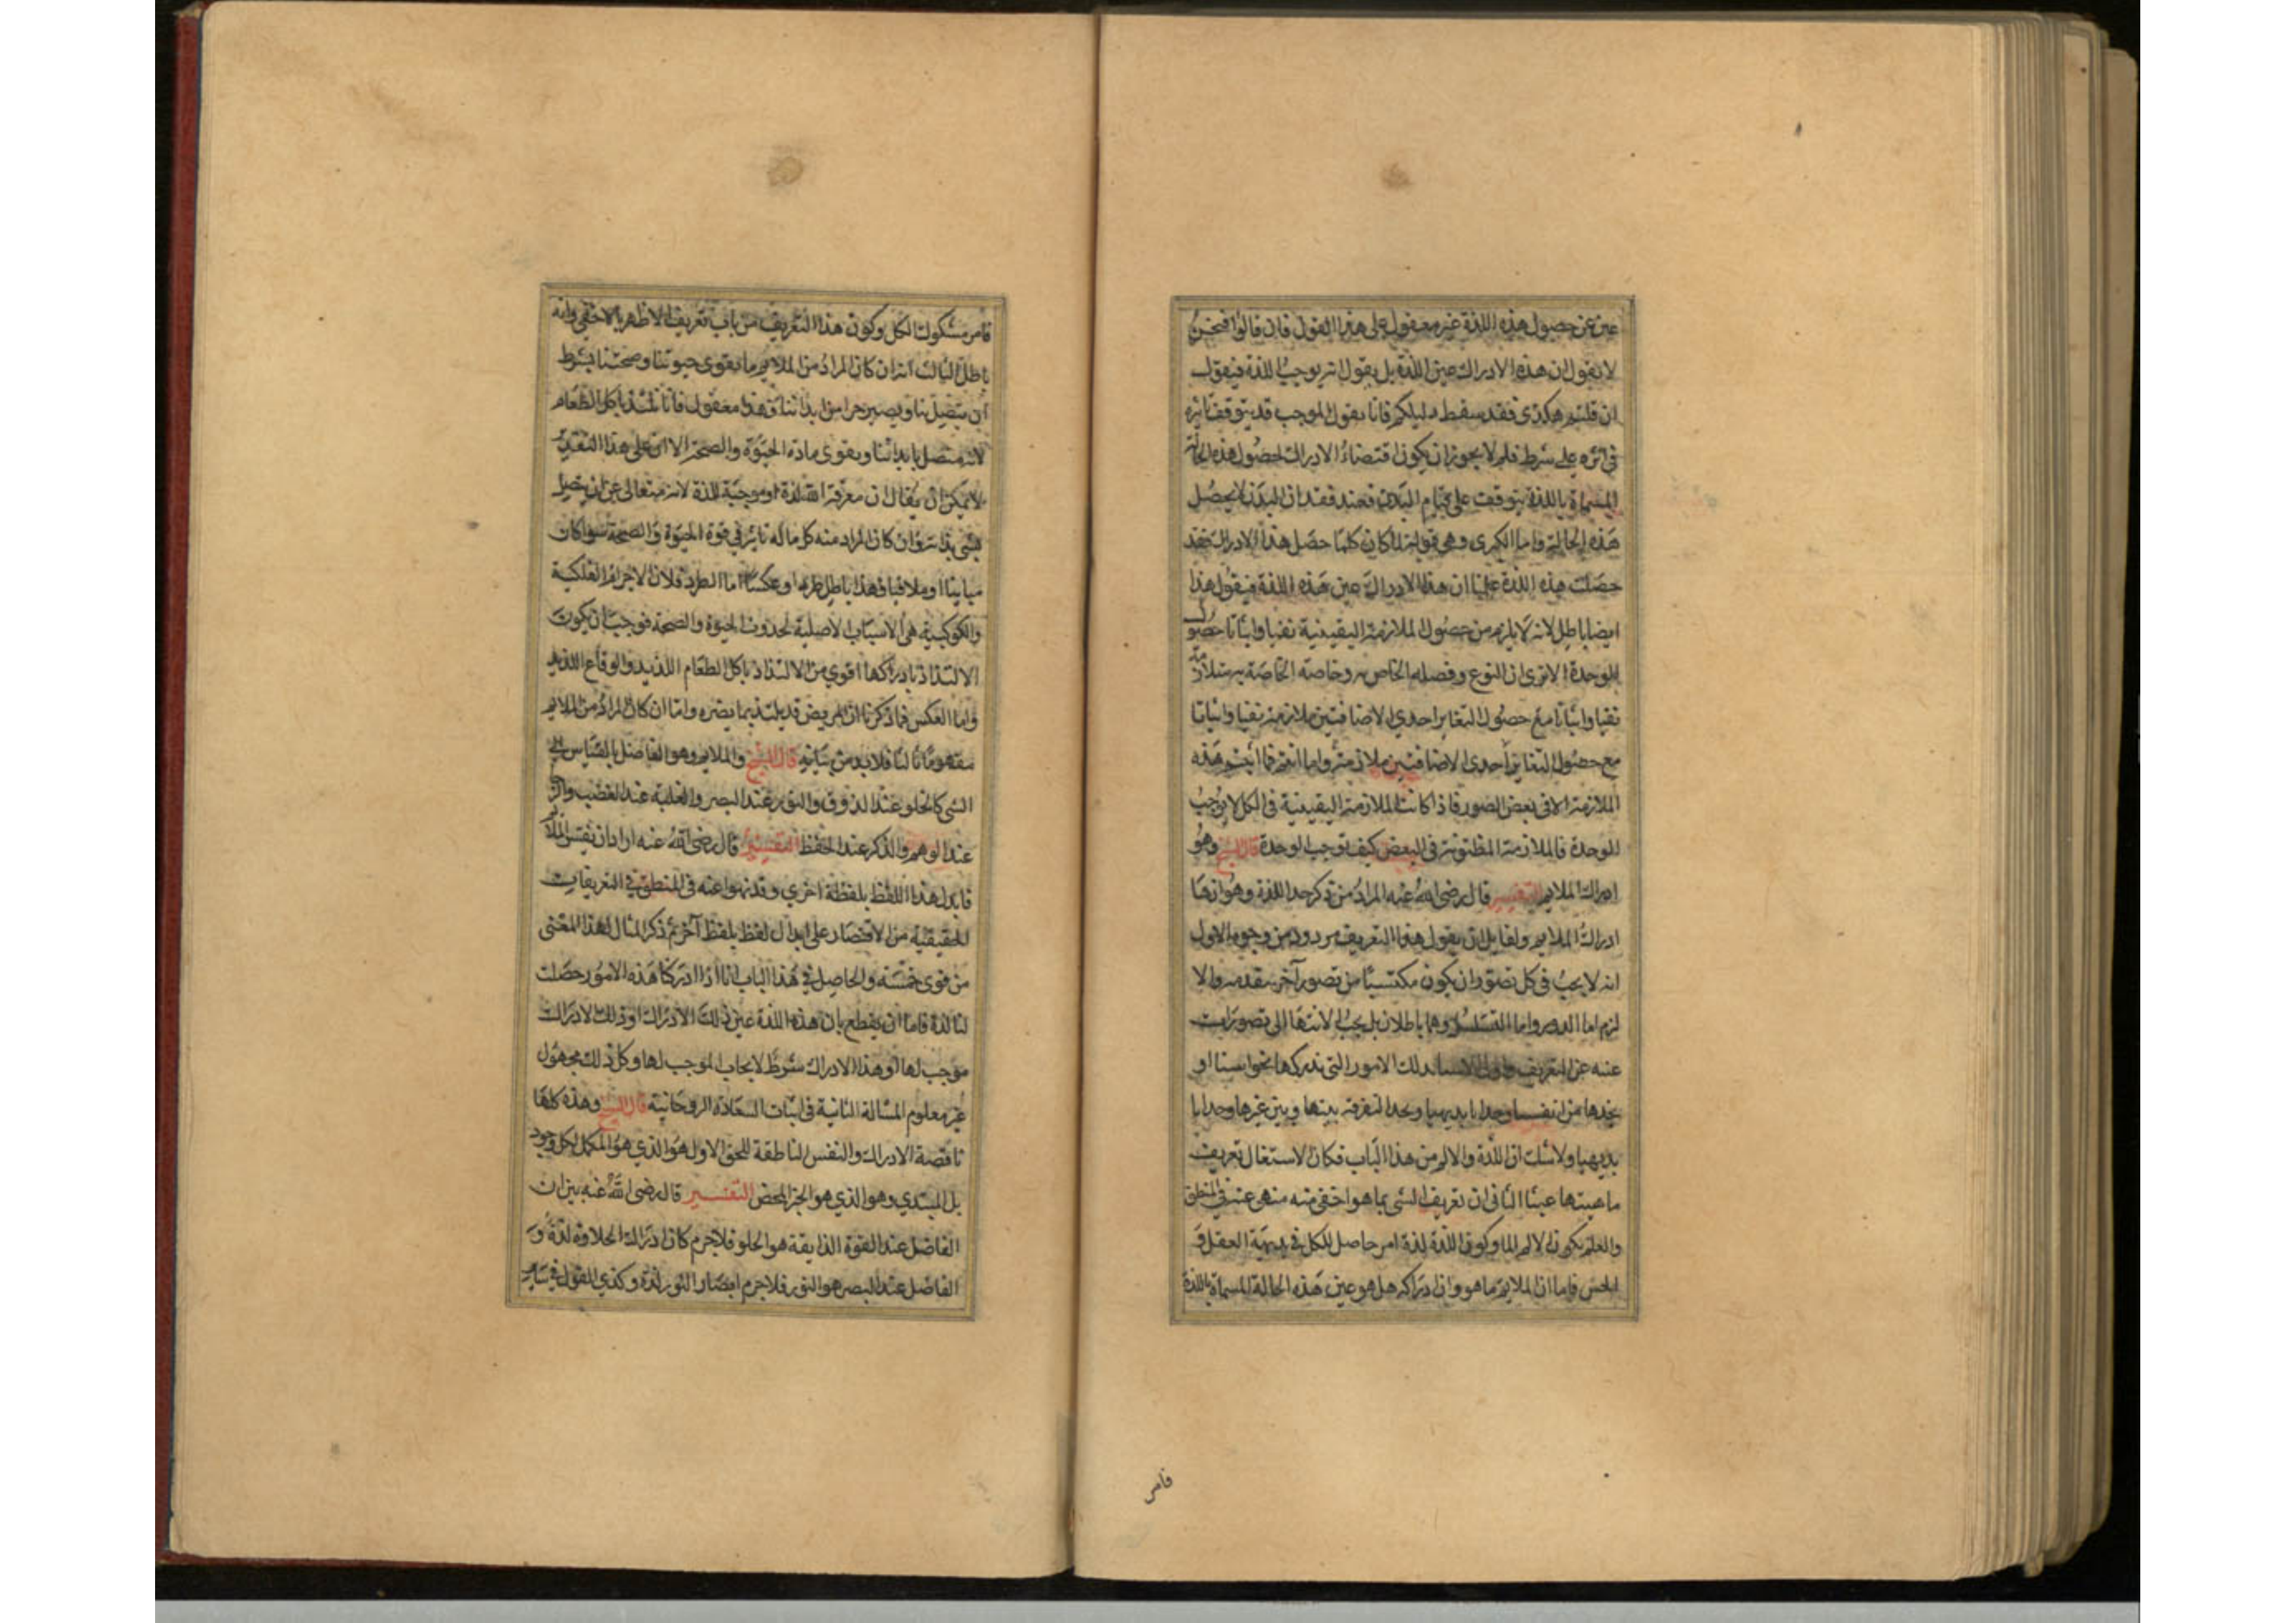 عين عن حصول هذه اللذة غير معقول على هذا القول فان قالوا فنحن
لا نقول ان هذه الادراك عين اللذة بل يقول انه يوجب اللذة فيقول
ان قلتم هكذى فقد سقط دليلكم فانا نقول الموجب قد يتوقف تاثيره
فى اثره على شرط فلم لا يجوز ان يكون اقتضاء الادراك لحصول هذه الحالة
المسماة باللذة يتوقف على قيام البدن فعند فقدان البدن لا يحصل
هذه الحالة واما الكبرى وهى قوله لما كان كلما حصل هذا الادراك فقد
حصلت هذه اللذة علمنا ان هذا الادراك عين هذه اللذة فيقول هذا
ايضا باطل لانه لا يلزم من حصول الملازمة اليقينية نفيا واثباتا حصول
الوحدة الا ترى ان النوع وفصله الخاص به وخاصته الخاصة به متلازمة
نفيا واثباتا مع حصول التغاير احدى الاضافتين ملازمة نفيا واثباتا
مع حصول التغاير احدى الاضافتين ملازمة واما انتم فما اثبتم هذه
الملازمة الا فى بعض الصور فاذا كانت الملازمة اليقينية فى الكل لا يوجب
الوحدة فالملازمة المظنونة فى البعض كيف توجب الوحدة قال الشيخ وهو
ادراك الملايم التفسير قال رضى الله عنه المراد من ذكر حد اللذة وهو انها
ادراك الملايم ولقايل ان يقول هذا التعريف مردود من وجوه الاول
انه لا يجب فى كل تصور ان يكون مكتسبا من تصور آخر يتقدمه والا
لزم اما الدور واما التسلسل وهما باطلان بل يجب الانتها الى تصورات
غنية عن التعريف الاشيا بذلك الامور التى ندركها بحواسنا او
نجدها من انفسنا وجدانا بديهيا ونجد التفرقة بينها وبين غيرها وجدانا
بديهيا ولا شك ان اللذة والالم من هذا الباب فكان الاستغال بتعريف
ماهيتها عبثا الثانى ان تعريف الشى بما هو اخفى منه منهى عنه فى المنطق
والعلم بكون الالم الما وكون اللذة لذة امر حاصل للكل فى بديهة العقل و
الحس فاما ان الملايم ما هو وان ادراكه هل هو عين هذه الحالة المسماة باللذة
فامر
فامر مشكوك الكل وكون هذا التعريف من باب تعريف الاظهر بالاخفى وانه
باطل الثالث انه ان كان المراد من الملايم ما يقوى حيوتنا وصحتنا بشرط
ان يتصل بنا ويصير جزا من ابداننا فهذا معقول فانا نلتذ باكل الطعام
لانه متصل بابداننا ويقوى مادة الحيوة والصحة الا ان على هذا التقدير
لا يمكن ان يقال ان معرفة الله لذة او موجبة للذة لانه متعالى عن ان يتصل
بشى بذاته وان كان المراد منه كل ما له تاثير فى قوة الحيوة والصحة سواكان
مباينا او ملاقيا فهذا باطل طردا وعكسا اما الطرد فلان الاجرام الفلكية
والكوكبية هى الاسباب الاصلية لحدوث الحيوة والصحة فوجب ان يكون
الالتذاذ بادراكها اقوى من الالتذاذ باكل الطعام اللذيذ والوقاع اللذيذ
واما العكس فما ذكرنا ان المريض قد يلتذ بما يضره واما ان كان المراد من الملايم
مفهوما ثالثا فلابد من بيانه قال الشيخ والملايم هو الفاضل بالقياس الى
الشى كالحلو عند الذوق والنور عند البصر والغلبة عند الغضب والرجا
عند الوهم والذكر عند الحفظ التفسير قال رضى الله عنه اراد ان يفسر الملايم
فابدل هذا اللفظ بلفظة اخرى وقد نهوا عنه فى المنطق فى التعريفات
الحقيقية من الاقتصار على ابدال لفظ بلفظ آخر ثم ذكر المثال لهذا المعنى
من قوى خمسة والحاصل فى هذا الباب انا اذا ادركنا هذه الامور حصلت
لنا لذة فاما ان يقطع بان هذه اللذة عين ذلك الادراك او ذلك الادراك
موجب لها او هذا الادراك شرط لايجاب الموجب لها وكل ذلك مجهول
غير معلوم المسالة الثانية فى اثبات السعادة الروحانية قال الشيخ وهذه كلها
ناقصة الادراك والنفس الناطقة للحق الاول هو الذى هو المكمل لكل وجود
بل المبتدى وهو الذى هو الخير المحض التفسير قال رضى الله عنه بين ان
الفاضل عند القوة الذايقة هو الحلو فلا جرم كان ادراك الحلاوة لذة و
الفاضل عند البصر هو النور فلا جرم ابصار النور لذة وكذى القول فى ساير